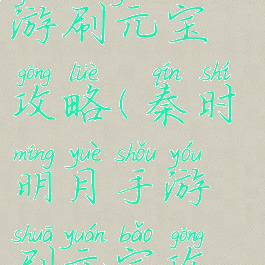 游刷元宝
gōng lüè qín shí
攻略(秦时
míng yuè shǒu yóu
明月手游
shuā yuán bǎo gōng
刷元宝攻